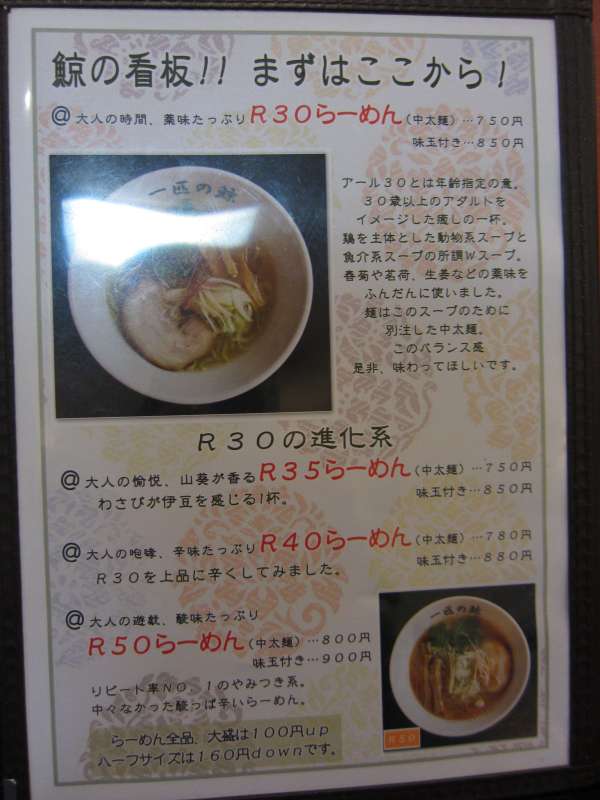 鯨の看板!! まずはここから!
@大人の時間、薬味たっぷりR30らーめん(中太麺)…750円
味玉付き…850円
一匹の鯨
アール30とは年齢指定の意。
30歳以上のアダルトを
イメージした癒しの一杯。
鶏を主体とした動物系スープと
魚介系スープの所謂Wスープ。
春菊や茗荷、生姜などの薬味を
ふんだんに使いました。
麺はこのスープのために
別注した中太麺。
このバランス感
是非、味わってほしいです。
R30の進化系
@大人の愉悦、山葵が香るR35らーめん(中太麺)…750円
わさびが伊豆を感じる1杯。
味玉付き…850円
@大人の咆哮、辛味たっぷりR40らーめん(中太麺)…780円
味玉付き…880円
R30を上品に辛くしてみました。
@大人の遊戯、酸味たっぷり
R50らーめん(中太麺)…800円
味玉付き…900円
リピート率NO.1のやみつき系。
中々なかった酸っぱ辛いらーめん。
一匹の鯨
R50
らーめん全品、大盛は100円up
ハーフサイズは160円downです。